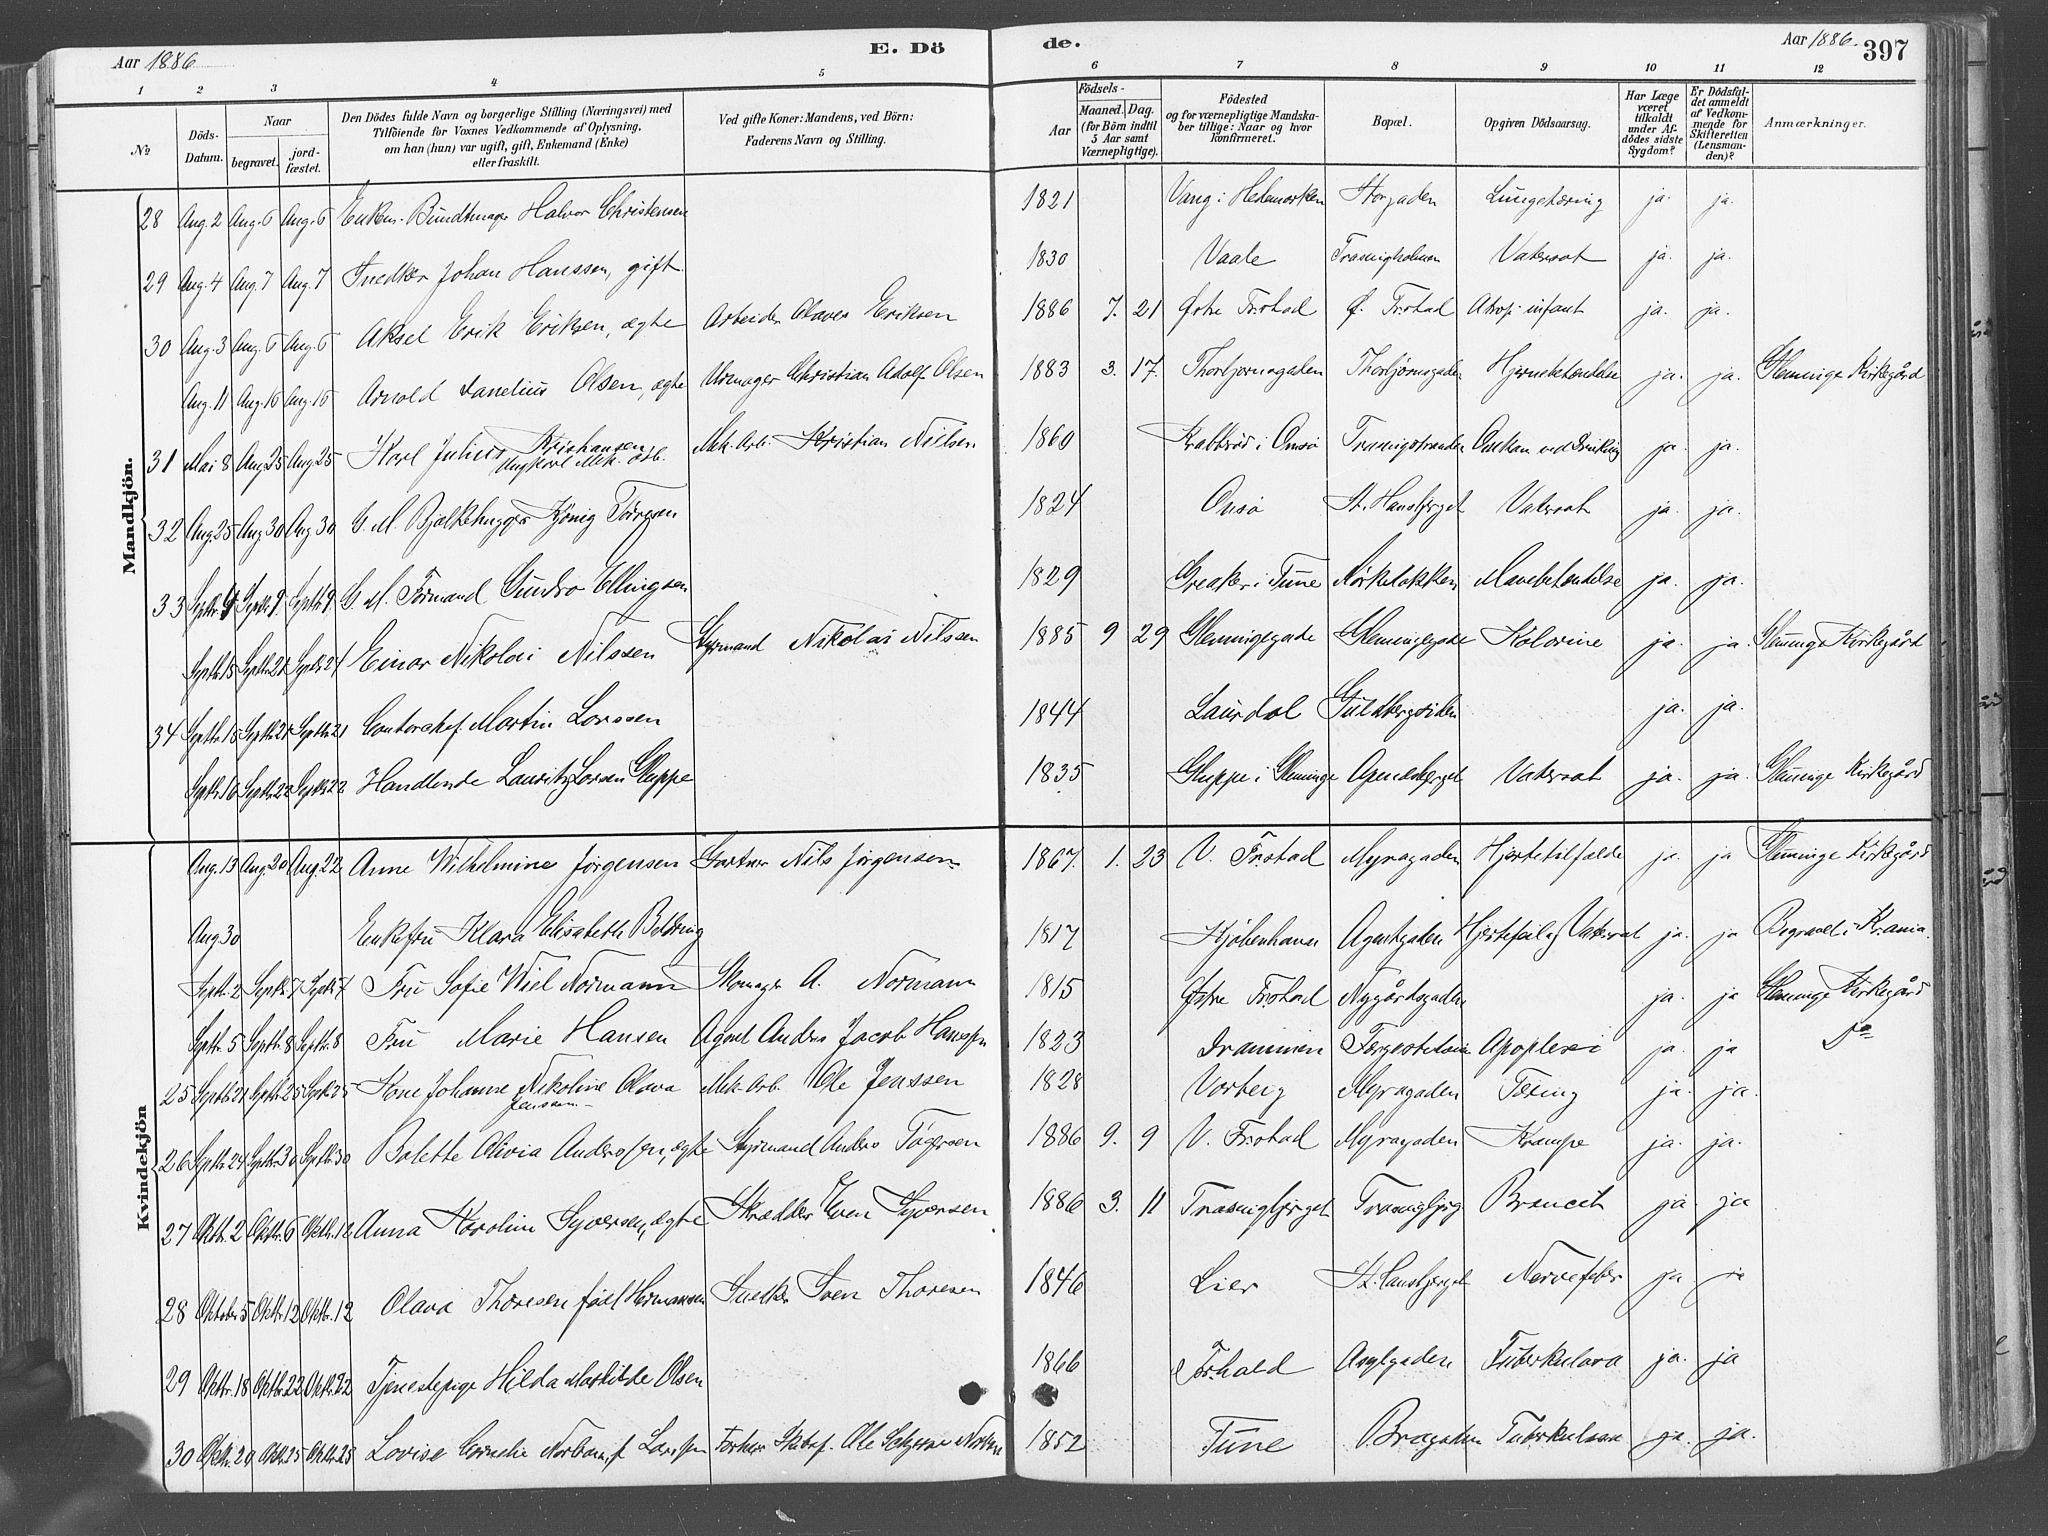 Aar 1886
E. Dö
de.
Aar 1886.
397
1 2 3 4 5 6 7 8 9 10 11 12
No
Döds-Datum.
Naar
begravet.
jord-fæstet.
Den Dödes fulde Navn og borgerlige Stilling (Næringsvei) med Tilföiende for Voxnes Vedkommende af Oplysning, om han (hun) var ugift, gift, Enkemand (Enke) eller fraskilt.
Ved gifte Koner: Mandens, ved Börn: Faderens Navn og Stilling.
Födsels-
Aar
Maaned. Dag.
(for Börn indtil 5 Aar samt Værnepligtige).
Födested og for værnepligtige Mandska-ber tillige: Naar og hvor konfirmeret.
Bopæl.
Opgiven Dödsaarsag.
Har Læge været tilkaldt under Af-dödes sidste Sygdom?
Er Dödsfal-det anmeldt af Vedkom-mende for Skifteretten (Lensman-den)?
Anmærkninger.
Mandkjön.
28 Aug. 2 Aug. 6 Aug. 6 Enkem. Bundtmager Halvor Christensen 1821 Vang i Hedemarken Storgaden Lungetæring ja. ja.
29 Aug. 4 Aug. 7 Aug. 7 Snedker Johan Hanssen, gift 1830 Vaale Trosvigholmen Vatersot ja. ja.
30 Aug. 3 Aug. 6 Aug. 6 Aksel Erik Eriksen, ægte Arbeider Olaves Eriksen 1886 7. 21 Østre Fr.stad Ø. Fr.stad Atrop. infant ja. ja.
Aug. 11 Aug. 16 Aug. 16 Arnold Danelius Olsen, ægte Urmager Christian Adolf Olsen 1883 3. 17. Thorbjørnsgaden Thorbjørnsgaden Hjernebetændelse ja. ja. Glemminge Kirkegård
31 Mai 8 Aug 25 Aug 25 Karl Julius Kristiansen Ungkarl Mek. arb. Mek. Arb. Kristian Nilsen 1860 Krabberød i Onsø Trosvigstranden Omkom ved Drukning ja. ja.
32 Aug. 25 Aug 30 Aug 30 G. M. Bjelkehugger Kjönig Törresen 1824 Onsø St. Hansbjerget Vatersot ja. ja.
33 Septbr. 4 Septbr 9 Septbr 9 G. M. Formand Gundro Ellingsen 1829 Greaker i Tune Mørkeløkken Mavebetændelse ja. ja.
Septbr. 15 Septbr 21 Septbr 21 Einar Nikolai Nilssen Styrmand Nikolai Nilssen 1885 9 29 Glemmigegade Glemmingegade Kolorine ja. ja. Glemminge Kirkegård
34 Septbr. 15 Septbr 21 Septbr 21 Contorchef Martin Larssen 1844 Laurdal Guldbergsiden ja. ja.
Septbr. 16 Septbr 22 Septbr 22 Handlende Lauritz Larsen Gluppe 1835 Gluppe i Glemminge Apenesbjerget Vatersot ja. ja. Glemminge Kirkegård
Kvindekjön
Aug. 13 Aug. 20 Aug. 22 Anne Wilhelmine Jørgensen Gartner Nils Jørgensen 1867. 1. 23 V. Fr.stad Myragaden Hjertetilfælde ja. ja Glemminge Kirkegård
Aug 30 Enkefru Klara Elisabeth Boldring 1817 Kjøbenhavn Agentgaden Hjertefeil og Vatersot ja. ja Begravet i Kr.ania.
Septbr. 2 Septbr 7 Septbr 7 Fru Sofie Wiel Normann Skomager A. Normann 1815 Østre Fr.stad Nygårdsgaden ja. ja Glemminge Kirkegård
Septbr. 5 Septbr. 8 Septbr. 8 Fru Marie Hansen Agent Anders Jacob Hansen 1823 Drammen Færgestedsveien Apoplexi ja. ja Do
25 Septbr 21 Septbr 25 Septbr 25 Kone Johanne Nikoline Olava Jenssen Mek. Arb. Ole Jenssen 1828 Varberg Myragaden Tæring ja. ja.
26 Septbr 24 Septbr 30 Septbr 30 Bolette Olivia Anderssen, ægte Styrmand Anders Tøgersen 1886 9. 9 V. Fr.stad Myragaden Krampe ja. ja.
27 Oktbr. 2 Oktbr. 6 Oktbr. 12 Anna Karoline Syversen, ægte Skrædder Even Syversen 1886 3. 11 Trosvigbjerget Trosvigbjerg Broncit ja. ja
28 Oktober 5 Oktbr. 12 Oktbr. 12 Olava Thoresen född Hermansen Snedker Sven Thoresen 1846 Lier St. Hansbjerget Nervefeber ja ja
29 Oktbr. 18 Oktbr. 22 Oktbr. 22 Tjenestepige Hilda Mathilde Olsen 1866 Fr.hald Asylgaden Tuberkulosa ja. ja
30 Oktbr. 20 Oktbr 25 Oktbr 25 Lovise Cornelie f. Larssen Ole 1852 Tune Brogaden Tuberkulosa ja. ja.